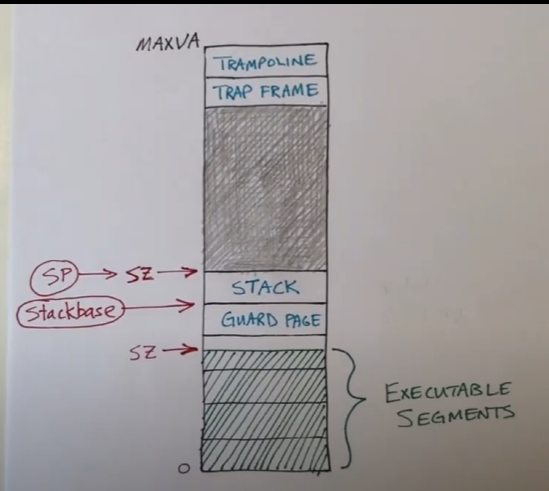 MAXVA
TRAMPOLINE
TRAP FRAME
SP → SZ →
STACK
Stackbase →
GUARD PAGE
SZ →
EXECUTABLE
SEGMENTS
0